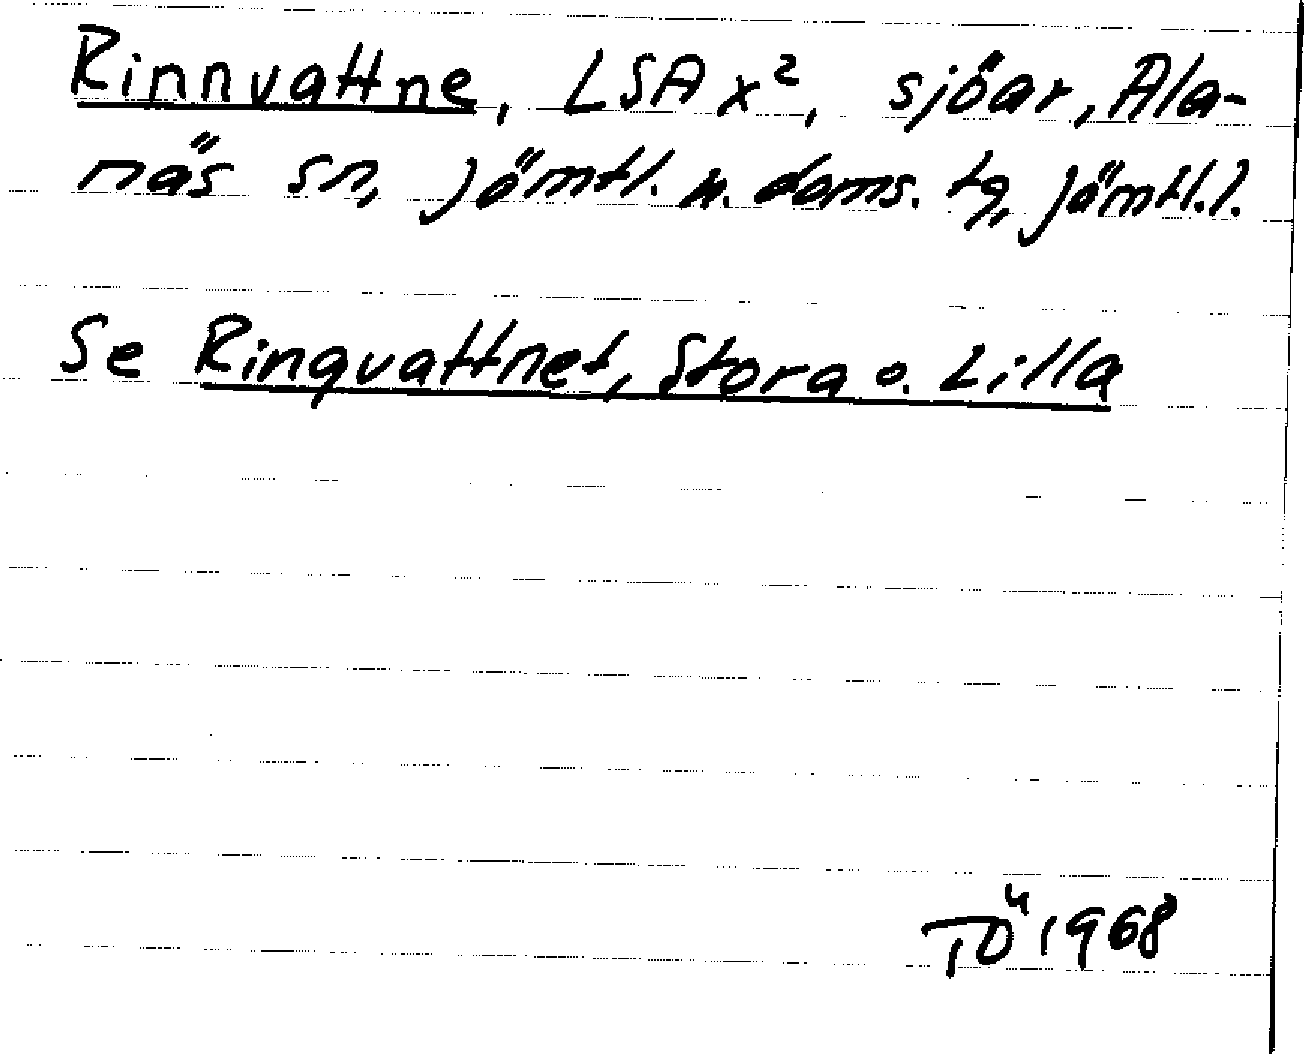 Rinnvattne, LSA x², sjöar, Ala-
näs sn, Jämtl. n. doms. tg, Jämtl.l.
Se Ringvattnet, Stora o. Lilla
TÖ 1968